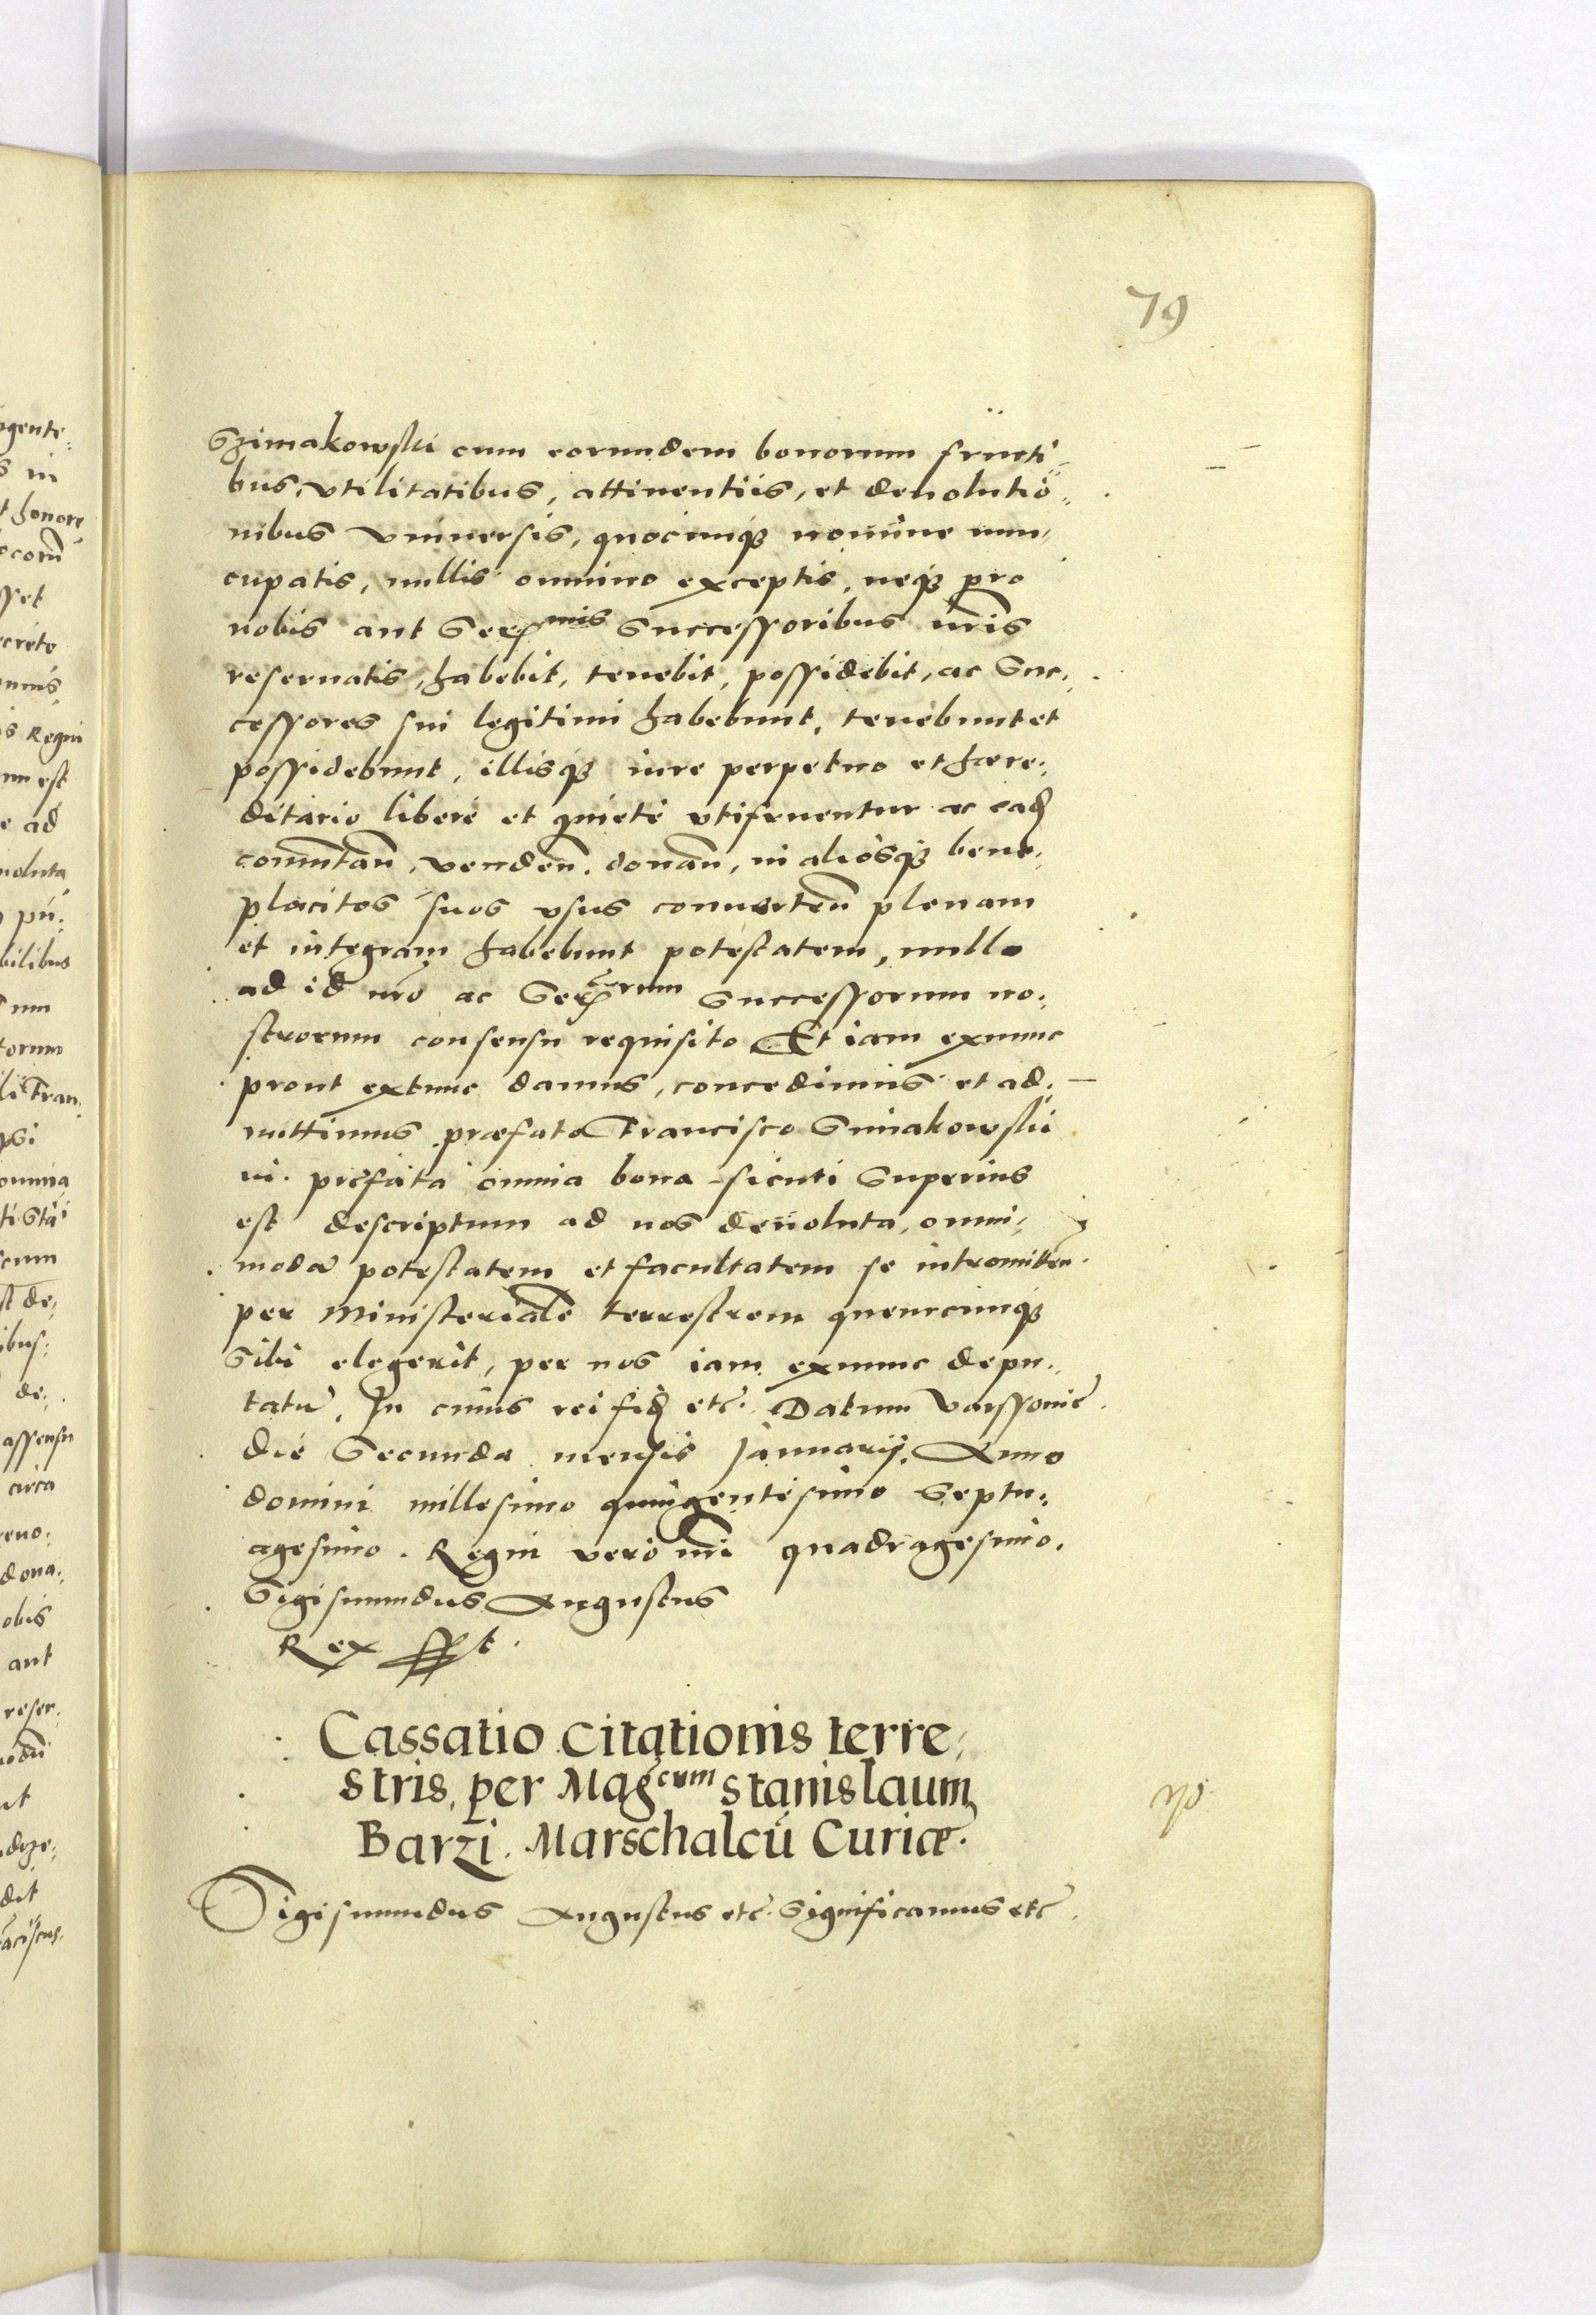 79
Szimakowski cum eorundem bonorum fructi-
bus, vtilitatibus, attinentiis, et deuolutio-
nibus vniuersis, quocunq3 nomine nun-
cupatis, nullis omnino exceptis, neq3 pro
nobis aut Ser^mis Successoribus nris
reseruatis, habebit, tenebit, possidebit, ac Suc-
cessores sui legitimi habebunt, tenebunt et
possidebunt, illisq3 iure perpetuo et hære-
ditario libere et quiete vtifruentur ac ead
comutan, venden, donan, in aliosq3 bene-
placitos suos vsus conuerten plenam
et integram habebunt potestatem, nullo
ad id nro ac Ser^orum Successorum no-
strorum consensu requisito Et iam exnunc
prout extunc damus, concedimus et ad-
mittimus præfato Francisco Simakowski
in præfata omnia bona sicuti Superius
est descriptum ad nos deuoluta, omni-
modã potestatem et facultatem se intromitten
per Ministerialẽ terrestrem quemcunq3
Sibi elegerit, per nos iam exnunc depu-
tatũ, In cuius rei fid etc. Datum Varssoviẽ
die Secunda mensis Januarij. Anno
domini millesimo quingentesimo Septu-
agesimo. Regni vero nri quadragesimo.
Sigismundus Augustus
Rex sst.
Cassatio Citationis terre-
stris, per Mag^cum Stanislaum
Barzi. Marschalcũ Curiæ.
Sigismundus Augustus etc. Significamus etc